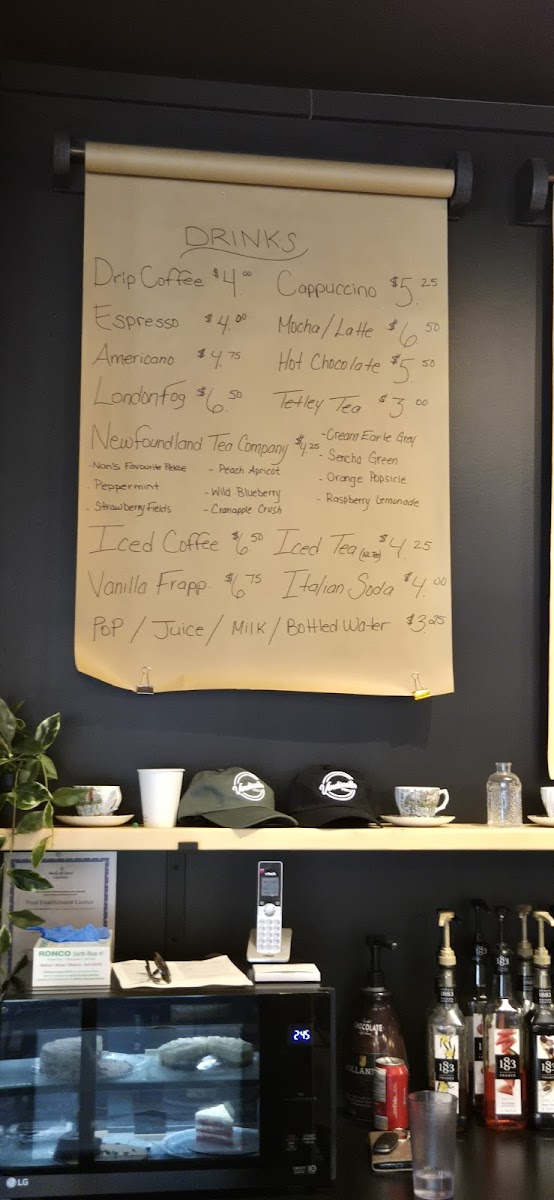 DRINKS
Drip Coffee $4.00
Cappuccino $5.25
Espresso $4.00
Mocha/Latte $6.50
Americano $4.75
Hot Chocolate $5.50
London Fog $6.50
Tetley Tea $3.00
Newfoundland Tea Company $4.25
- Nan's Favourite
- Peppermint
- Strawberry Fields
- Peach Apricot
- Wild Blueberry
- Cranapple Crush
- Cream Earle Grey
- Sencha Green
- Orange Popsicle
- Raspberry Lemonade
Iced Coffee $6.50
Iced Tea $4.25
Vanilla Frapp. $6.75
Italian Soda $4.00
Pop / Juice / Milk / Bottled Water $3.25
Food Establishment Licence
RONCO
vtech
2:45
LG
CHOCOLATE
1883
183
FRANCE
183
FRANCE
183